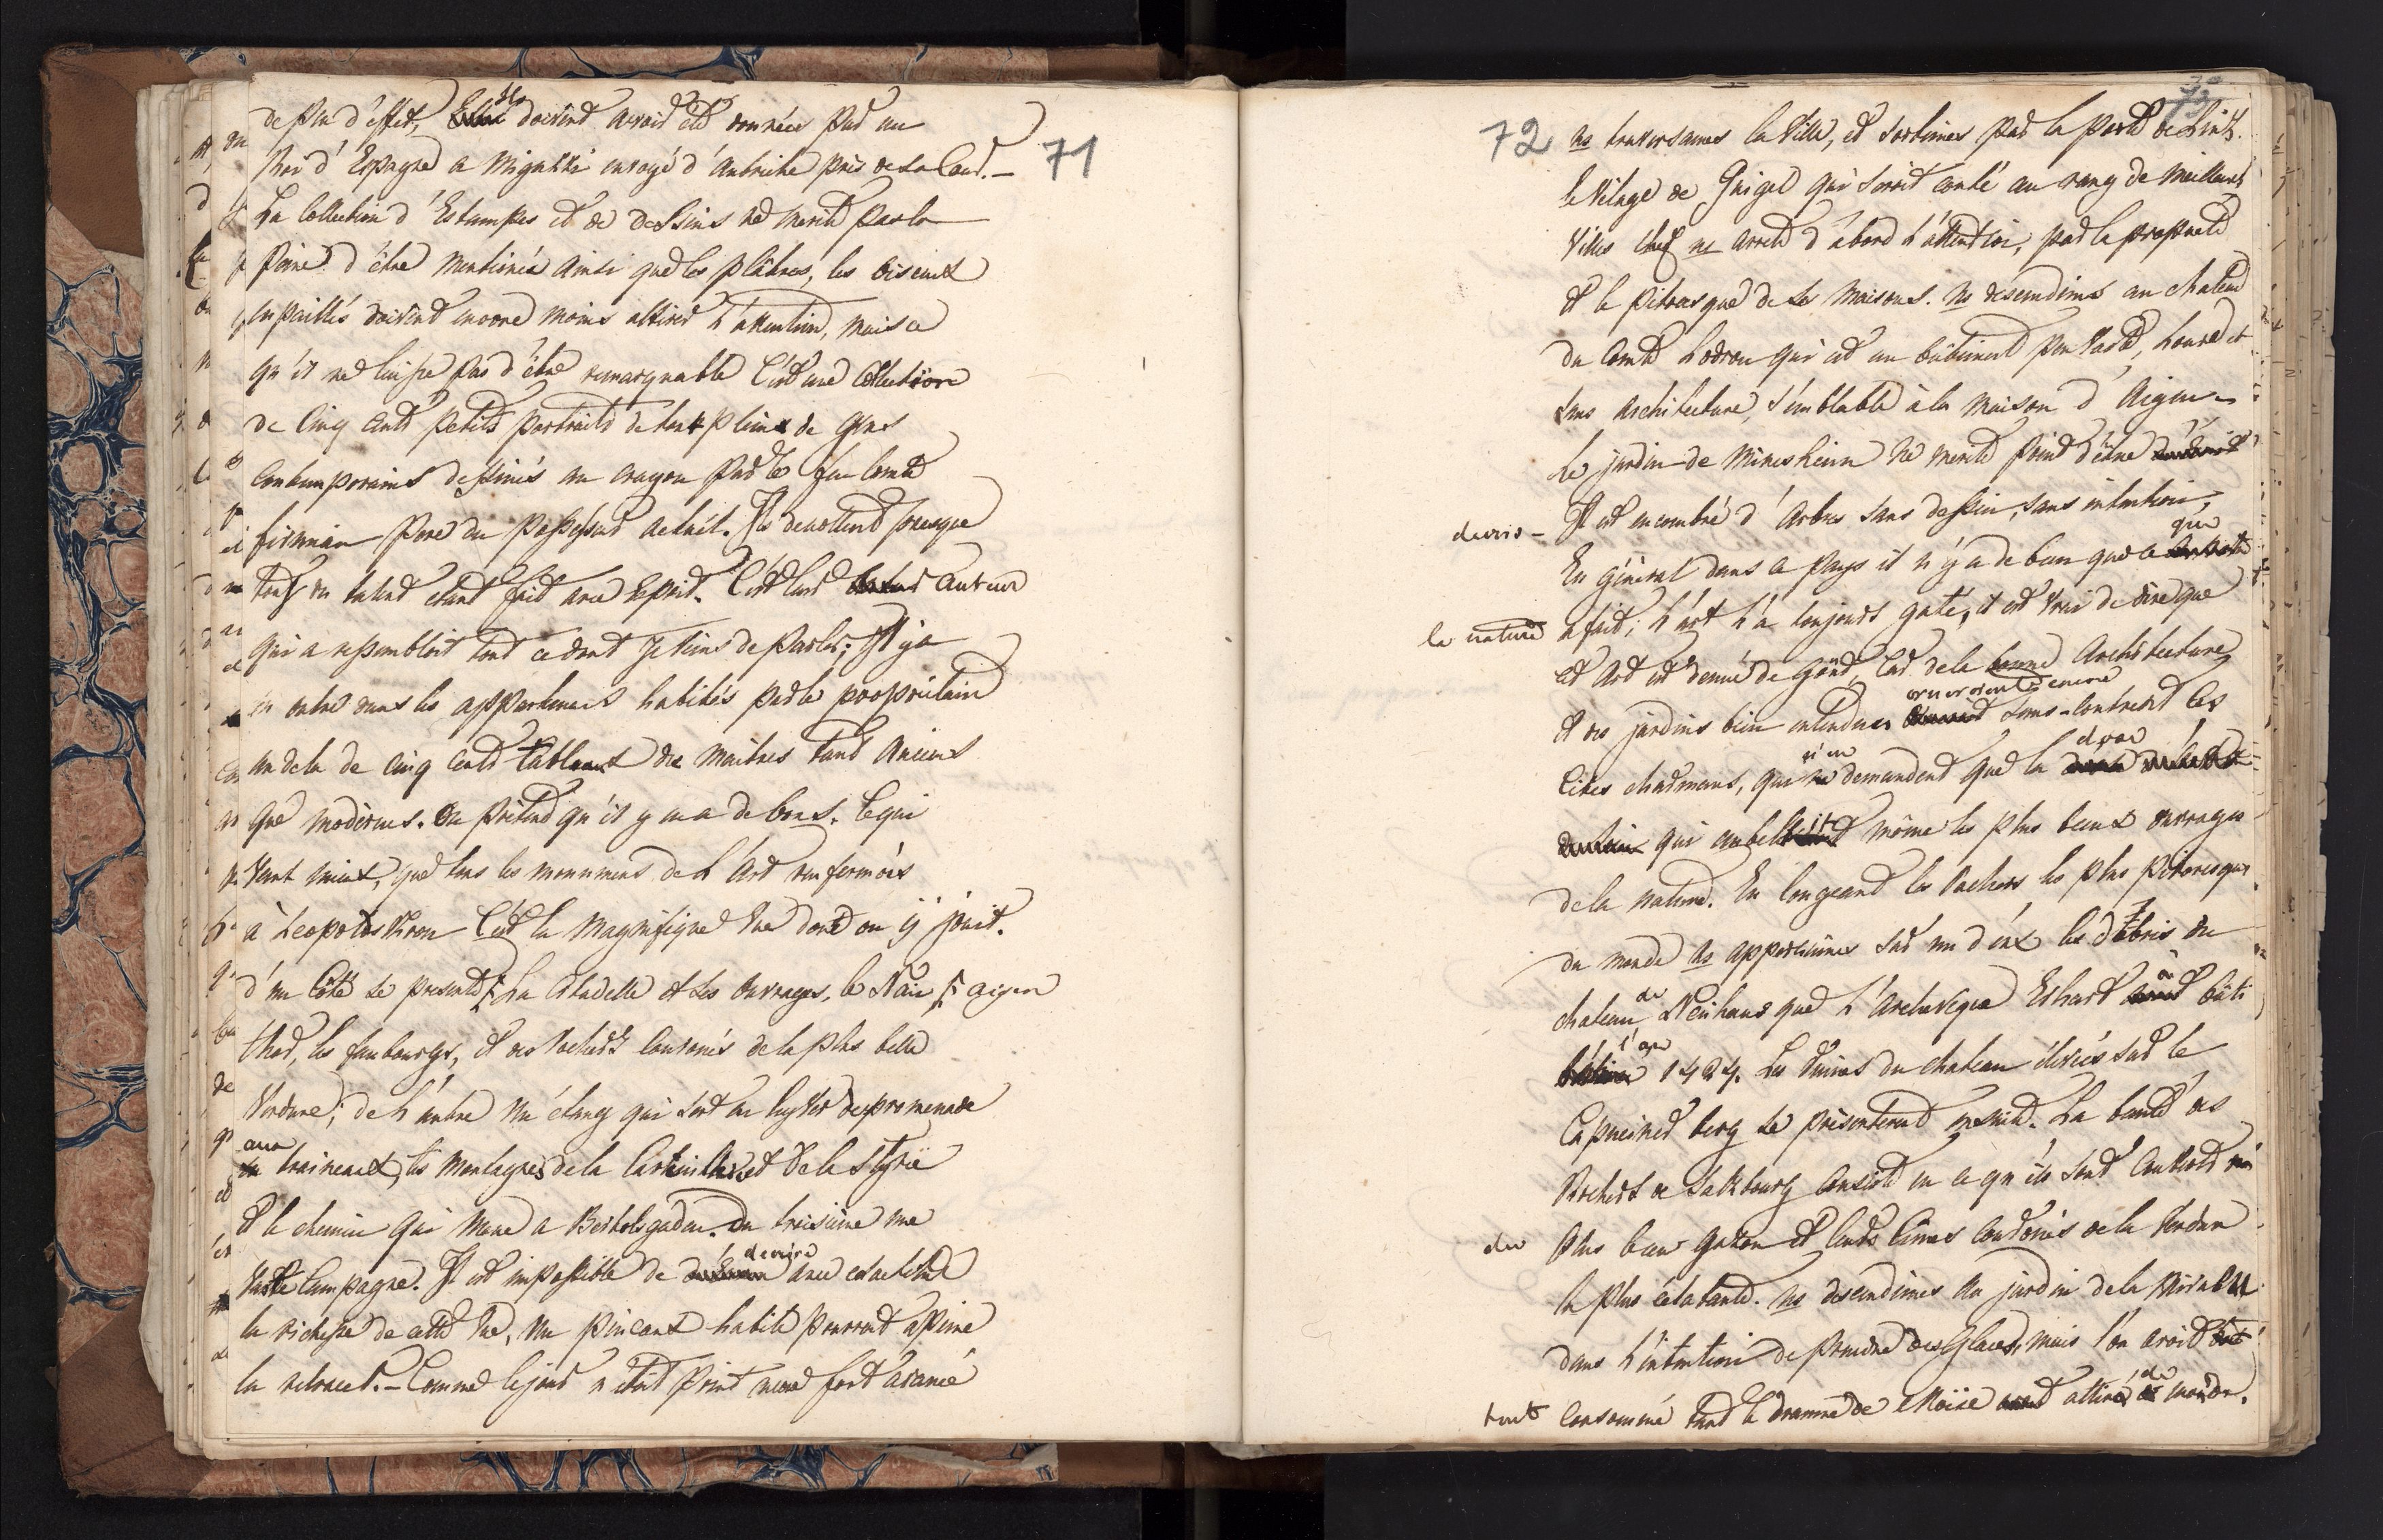 71
de plus d'effet, Elles doivent avoir été données par un
Roi d'Espagne a Migazzi envoyé d'Autriche près de sa Cour. —
La Collection d'Estampes et de dessins ne merite pas la
peine d'être mentionée ainsi que les plâtres, les oiseaux
enpaillés doivent encore moins attirer l'attention, mais ce
qu'il ne laisse pas d'être remarquable C'est une Collection
de Cinq cents petits portraits de tout plein de gens
Contemporains dessinés au crayon par le feu Comte
firmian Pere du Possesseur actuel. Ils denottent presque
tous du talent etant fait avec Esprit. C'est leur Auteur
qui a rassembloit tout ce dont je viens de parler; Il y a
en outre dans les appartemens habités par le propriétaire
au dela de cinq cents tableaux de maitres tant Anciens
que modernes. On prétend qu'il y en a de bons. Ce qui
vaut mieux, que tous les monumens de l'Art renfermés
à Leopoldskron C'est la magnifique vue dont on y jouit.
d'un Côté se presente La Citadelle et ses ouvrages, le Nain Aigen
thor, les faubourgs, et des rochers Couronés de la plus belle
Verdure; de l'autre un étang qui sert en hyver de promenade
aux traineaux, les Montagnes de la Carinthie et de la Styrie
et le chemin qui mene a Bertolsgaden. Du troisième une
vaste Campagne. Il est impossible de décrire avec exactitude
la richesse de cette vue, un pinceaux habile pourroit a peine
la retracer. — Comme le jour n'étoit point encore fort avancé
72
ns traversames la Ville, et sortimes par la porte de Lintz.
le Vilage de Gnigel qui seroit conté au rang de meilleures
Villes chez ns arrete d'abord l'attention, par la propreté
et le pitoresque de ses maisons. ns descendimes au chateau
du Comte Lodron qui est un bâtiment peu vaste, lourd et
sans architecture, semblable à la maison d'Aigen.
Le jardin de Minesheim ne merite point d'être
decris — Il est encombré d'Arbres sans dessin, sans intention,
En général dans ce pays il n'y a de beau que ce que
la nature a fait; l'art l'a toujours gaté, il est vrai de dire que
cet Art est denué de Goût, Car de la bonne Architecture
et des jardins bien entendues orneroient encore sans contredit ces
Cites charmans, qui n'en demandent que la
qui embellit même les plus beaux ouvrages
de la nature. En longeant les Rochers les plus pitoresques
du monde ns apperçumes sur un d'eux les débris du
chateau de Neuhaus que l'Archevêque Erhard a bâti
l'an 1424. Les Ruines du chateau élevées sur le
Capucines berg se présenterent ensuite. La beauté des
Rochers de Saltzbourg Consiste en ce qu'ils sont Couverts
du plus beau gazon et leurs Cimes Couronés de la Verdure
la plus éclatante. ns descendimes au jardin de la Mirabelle
dans l'intention de prendre des Glaces, mais l'on avoit
tout Consommé tant le dramme de Moïse attiré de monde.